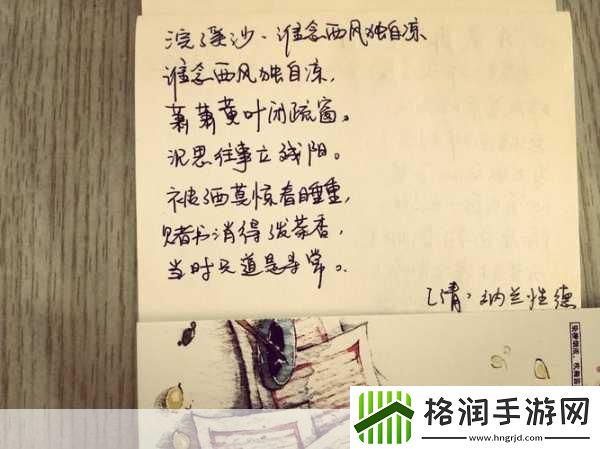 浣溪沙·谁念西风独自凉
谁念西风独自凉,
萧萧黄叶闭疏窗。
沉思往事立残阳。
被酒莫惊春睡重,
赌书消得泼茶香,
当时只道是寻常。
[清]·纳兰性德
格润手游网
www.hngrjd.com